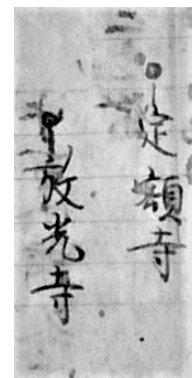 定額寺
放光寺